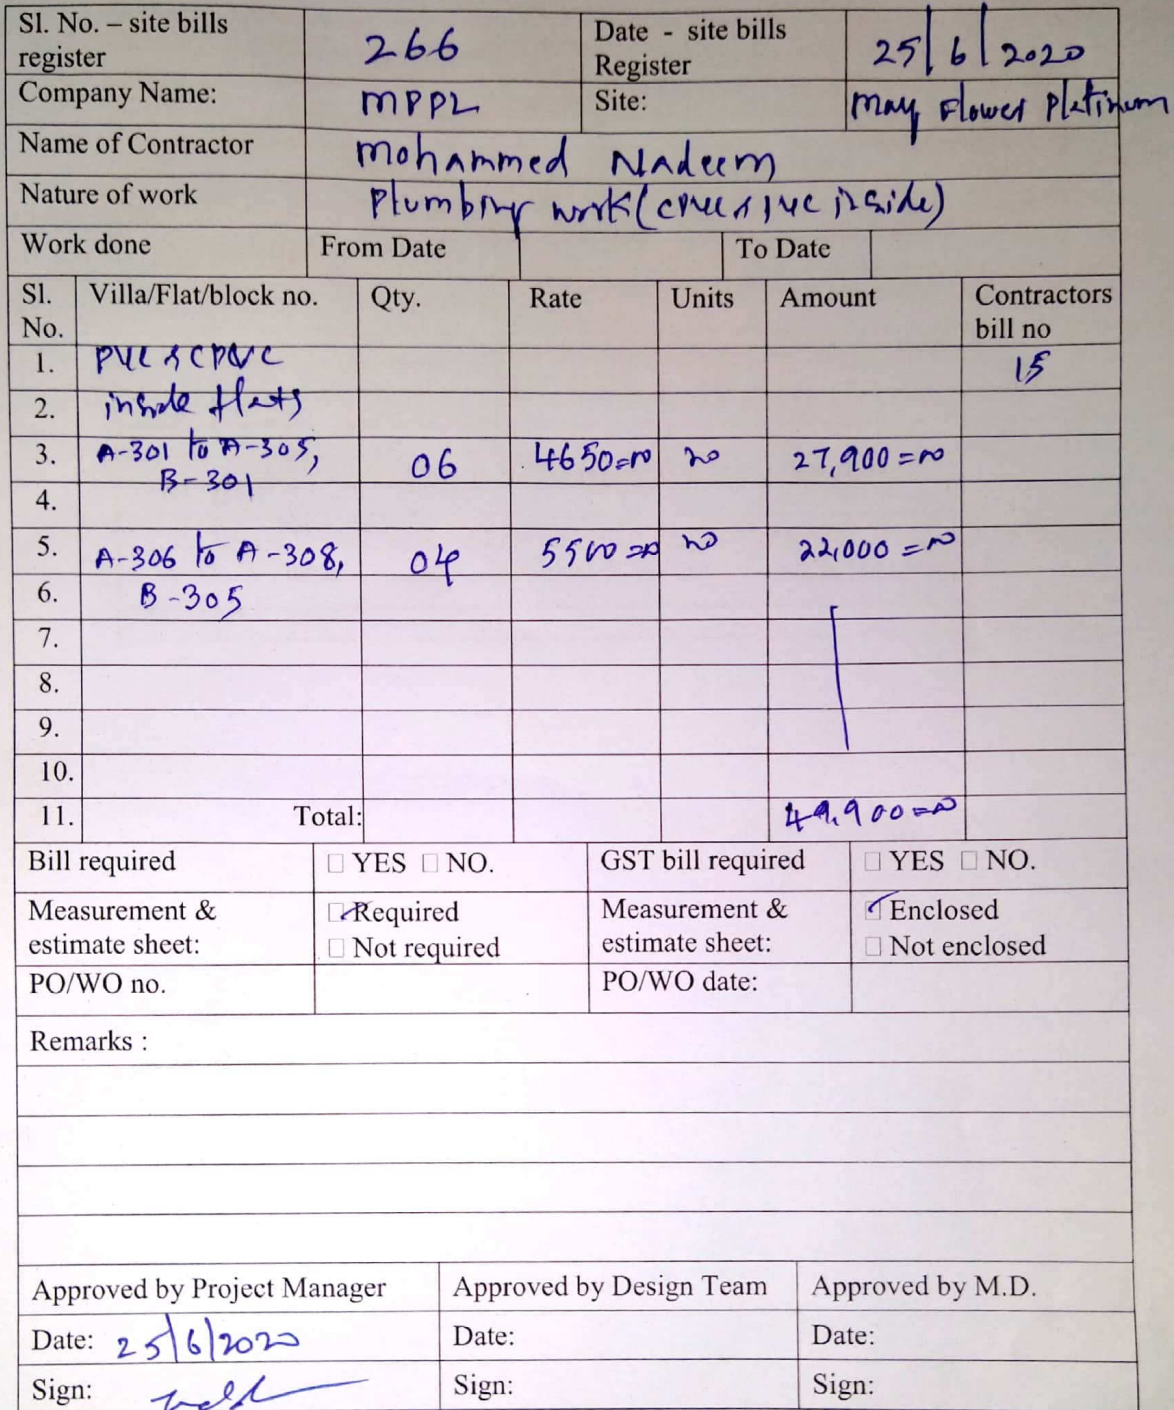 Sl. No. – site bills register 266 Date - site bills Register 25/6/2020
Company Name: MPPL Site: May Flower Platinum
Name of Contractor Mohammed Nadeem
Nature of work Plumbing work (CPVC & PVC inside)
Work done From Date To Date
Sl. No. Villa/Flat/block no. Qty. Rate Units Amount Contractors bill no
1. PVC & CPVC 15
2. inside flats
3. A-301 to A-305, 06 4650=00 no 27,900=00
B-301
4.
5. A-306 to A-308, 04 5500=00 no 22,000=00
6. B-305
7.
8.
9.
10.
11. Total: 49,900=00
Bill required □ YES □ NO. GST bill required □ YES □ NO.
Measurement & estimate sheet: ☑ Required Measurement & estimate sheet: ☑ Enclosed
□ Not required □ Not enclosed
PO/WO no. PO/WO date:
Remarks :
Approved by Project Manager Approved by Design Team Approved by M.D.
Date: 25/6/2020 Date: Date:
Sign: Sign: Sign: